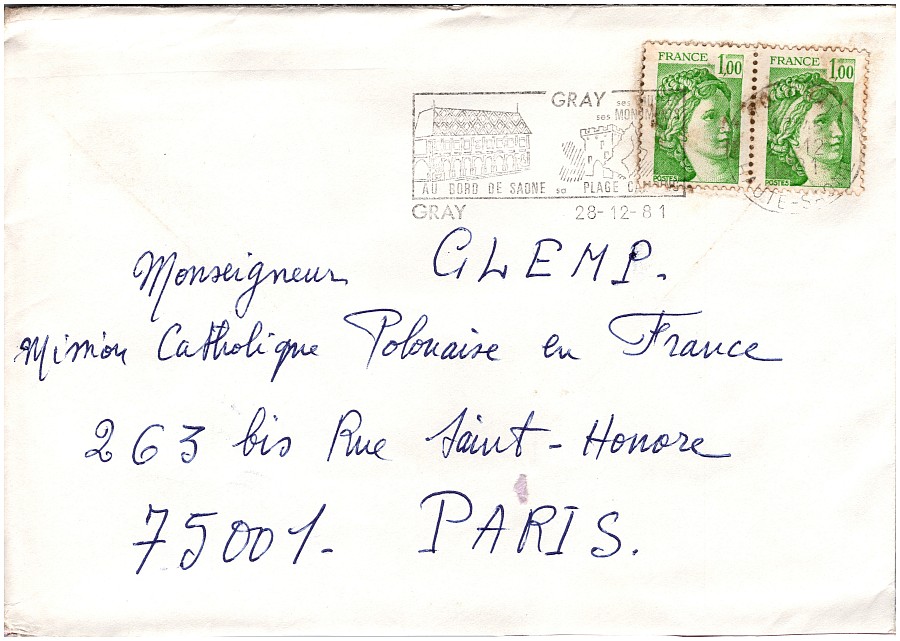 FRANCE 1,00 FRANCE 1,00
POSTES POSTES
GRAY ses
ses
AU BORD DE SAONE sa PLAGE
GRAY 28-12-81
Monseigneur GLEMP.
Mission Catholique Polonaise en France
263 bis Rue Saint-Honore
75001. PARIS.